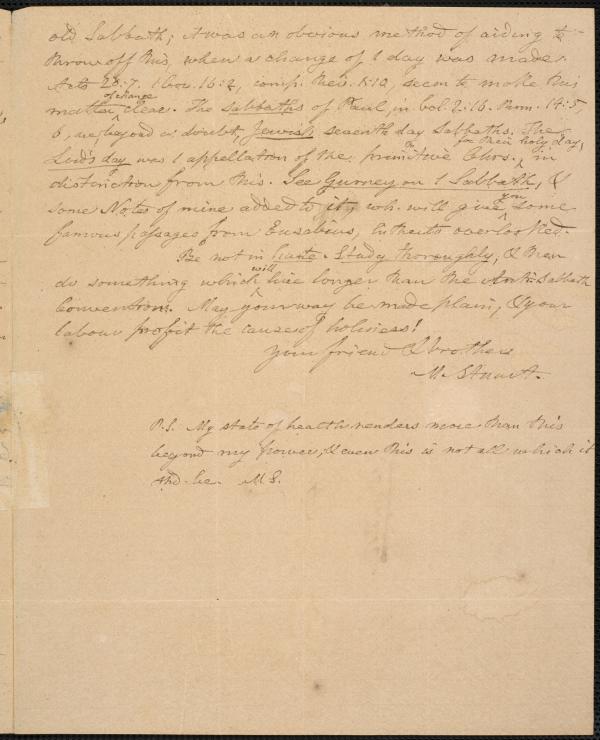 old Sabbath; it was an obvious method of aiding to
throw off this, when a change of 1 day was made.
Acts 20:7. 1 Cor. 16:2, comp. Rev. 1:10, seem to make this
matter of change clear. The Sabbaths of Paul, in Col. 2:16. Rom. 14:5,
6, are, beyond a doubt, Jewish seventh day Sabbaths. The
Lord's day was 1 appellation of the primitive Chrs. for their holy day, in
distinction from this. See Gurney on 1 Sabbath, &
some Notes of mine added to it, wh. will give you some
famous passages from Eusebius, hitherto overlooked.
Be not in haste. Study thoroughly, & then
do something which will live longer than the Anti-Sabbath
Convention. May your way be made plain, & your
labour profit the cause of holiness!
Your friend & brother
M. Stuart.
P.S. My state of health renders more than this
beyond my power, & even this is not all which it
shd. be. M S.